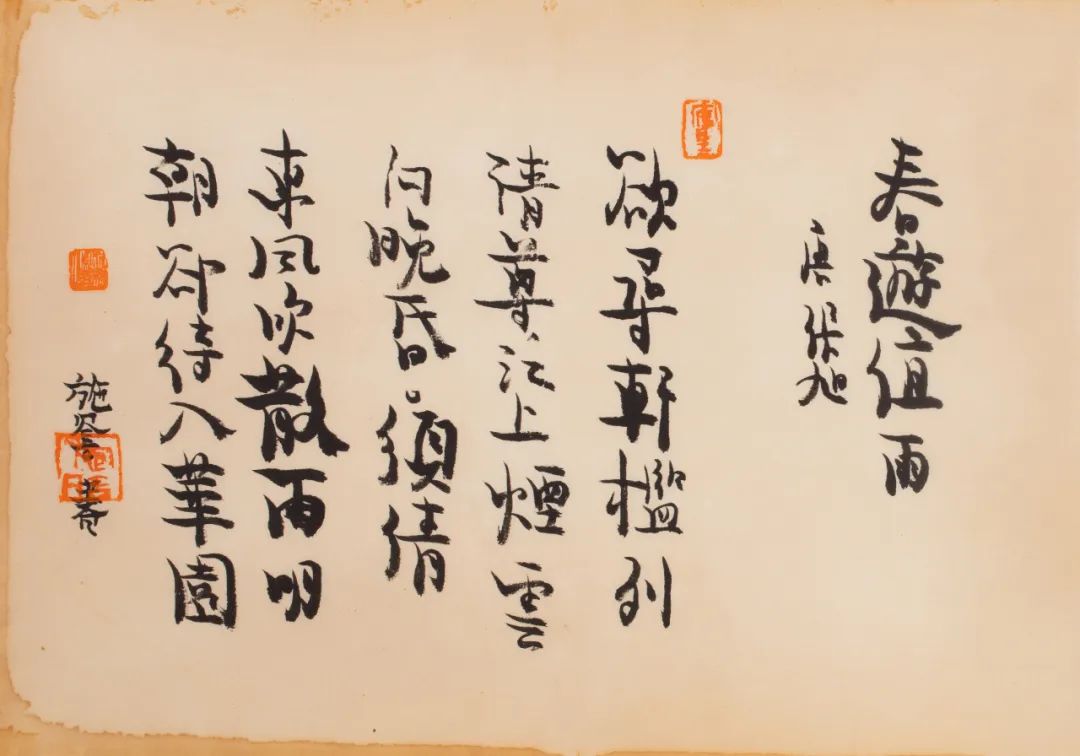 春遊值雨
唐張旭
欲尋軒檻列
清尊江上煙雲
向晚昏須倩
東風吹散雨明
朝卻待入華園
施書